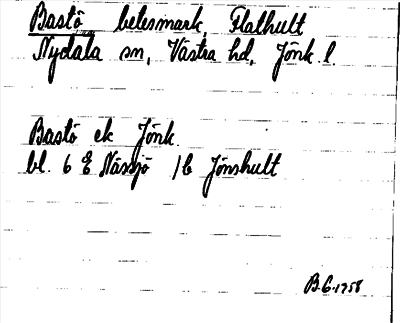 Bastö betesmark, Flathult
Nydala sn, Västra hd, Jönk. l.
Bastö ek Jönk.
bl. 6 E Nässjö /b Jönshult
B.G. 1958